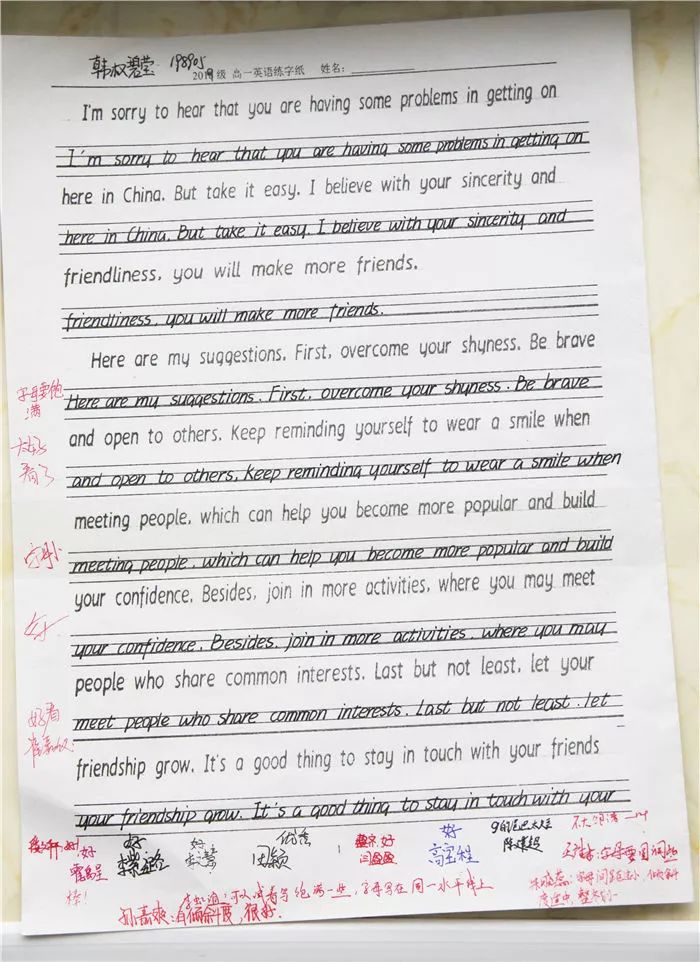 198905
2018级 高一英语练字纸 姓名:
I'm sorry to hear that you are having some problems in getting on
I'm sorry to hear that you are having some problems in getting on
here in China. But take it easy. I believe with your sincerity and
here in China. But take it easy. I believe with your sincerity and
friendliness, you will make more friends.
friendliness, you will make more friends.
Here are my suggestions. First, overcome your shyness. Be brave
Here are my suggestions. First, overcome your shyness. Be brave
and open to others. Keep reminding yourself to wear a smile when
and open to others. Keep reminding yourself to wear a smile when
meeting people, which can help you become more popular and build
meeting people, which can help you become more popular and build
your confidence. Besides, join in more activities, where you may meet
your confidence. Besides, join in more activities, where you may
people who share common interests. Last but not least, let your
meet people who share common interests. Last but not least, let
friendship grow. It's a good thing to stay in touch with your friends
your friendship grow. It's a good thing to stay in touch with your
字母要饱
满
太好
看了
好
好看
好
好
优秀
好
好
田颖
棒!
可以试着写饱满一些,字母写在同一水平线上
很好.